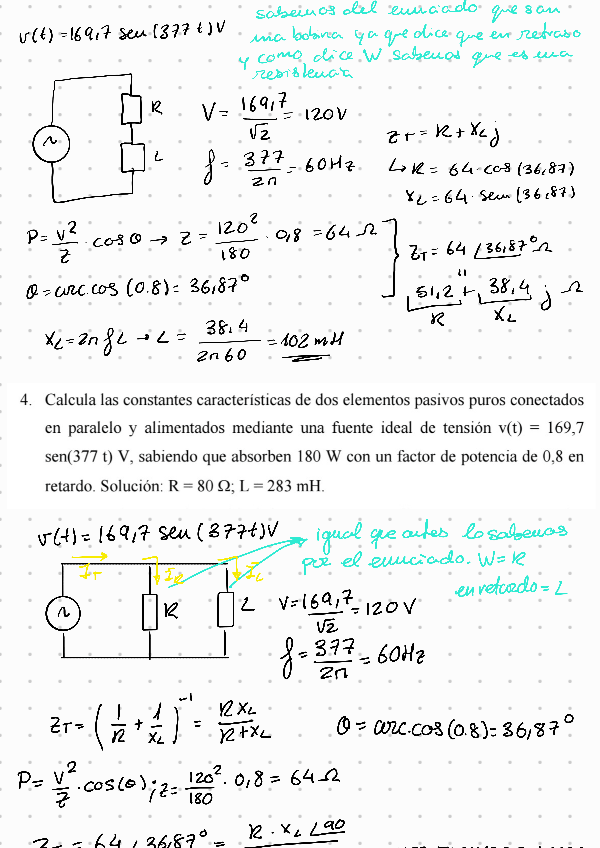 v(t) = 169,7 sen (377 t) V
sabemos del enunciado que son
una bobina ya que dice que en retraso
y como dice W sabemos que es una
resistencia
R
L
V = 169,7/√2 = 120V
f = 377/2π = 60Hz
Z_T = R + X_L j
↳ R = 64·cos(36,87)
X_L = 64·sen(36,87)
P = V²/Z · cos θ → Z = 120²/180 · 0,8 = 64 Ω
θ = arc.cos (0.8) = 36,87°
Z_T = 64 ∠36,87° Ω
"
51,2 + 38,4 j Ω
R X_L
X_L = 2π f L → L = 38.4/2π 60 = 102 mH
4. Calcula las constantes características de dos elementos pasivos puros conectados
en paralelo y alimentados mediante una fuente ideal de tensión v(t) = 169,7
sen(377 t) V, sabiendo que absorben 180 W con un factor de potencia de 0,8 en
retardo. Solución: R = 80 Ω; L = 283 mH.
v(t) = 169,7 sen (377t) V
igual que antes lo sabemos
por el enunciado. W = R
en retardo = L
I_T
I_R
I_L
R
L
V = 169,7/√2 = 120 V
f = 377/2π = 60Hz
Z_T = (1/R + 1/X_L)⁻¹ = R X_L/R + X_L
θ = arc.cos (0.8) = 36,87°
P = V²/Z · cos(θ); Z = 120²/180 · 0,8 = 64 Ω
Z_T = 64 ∠36,87° = R · X_L ∠90